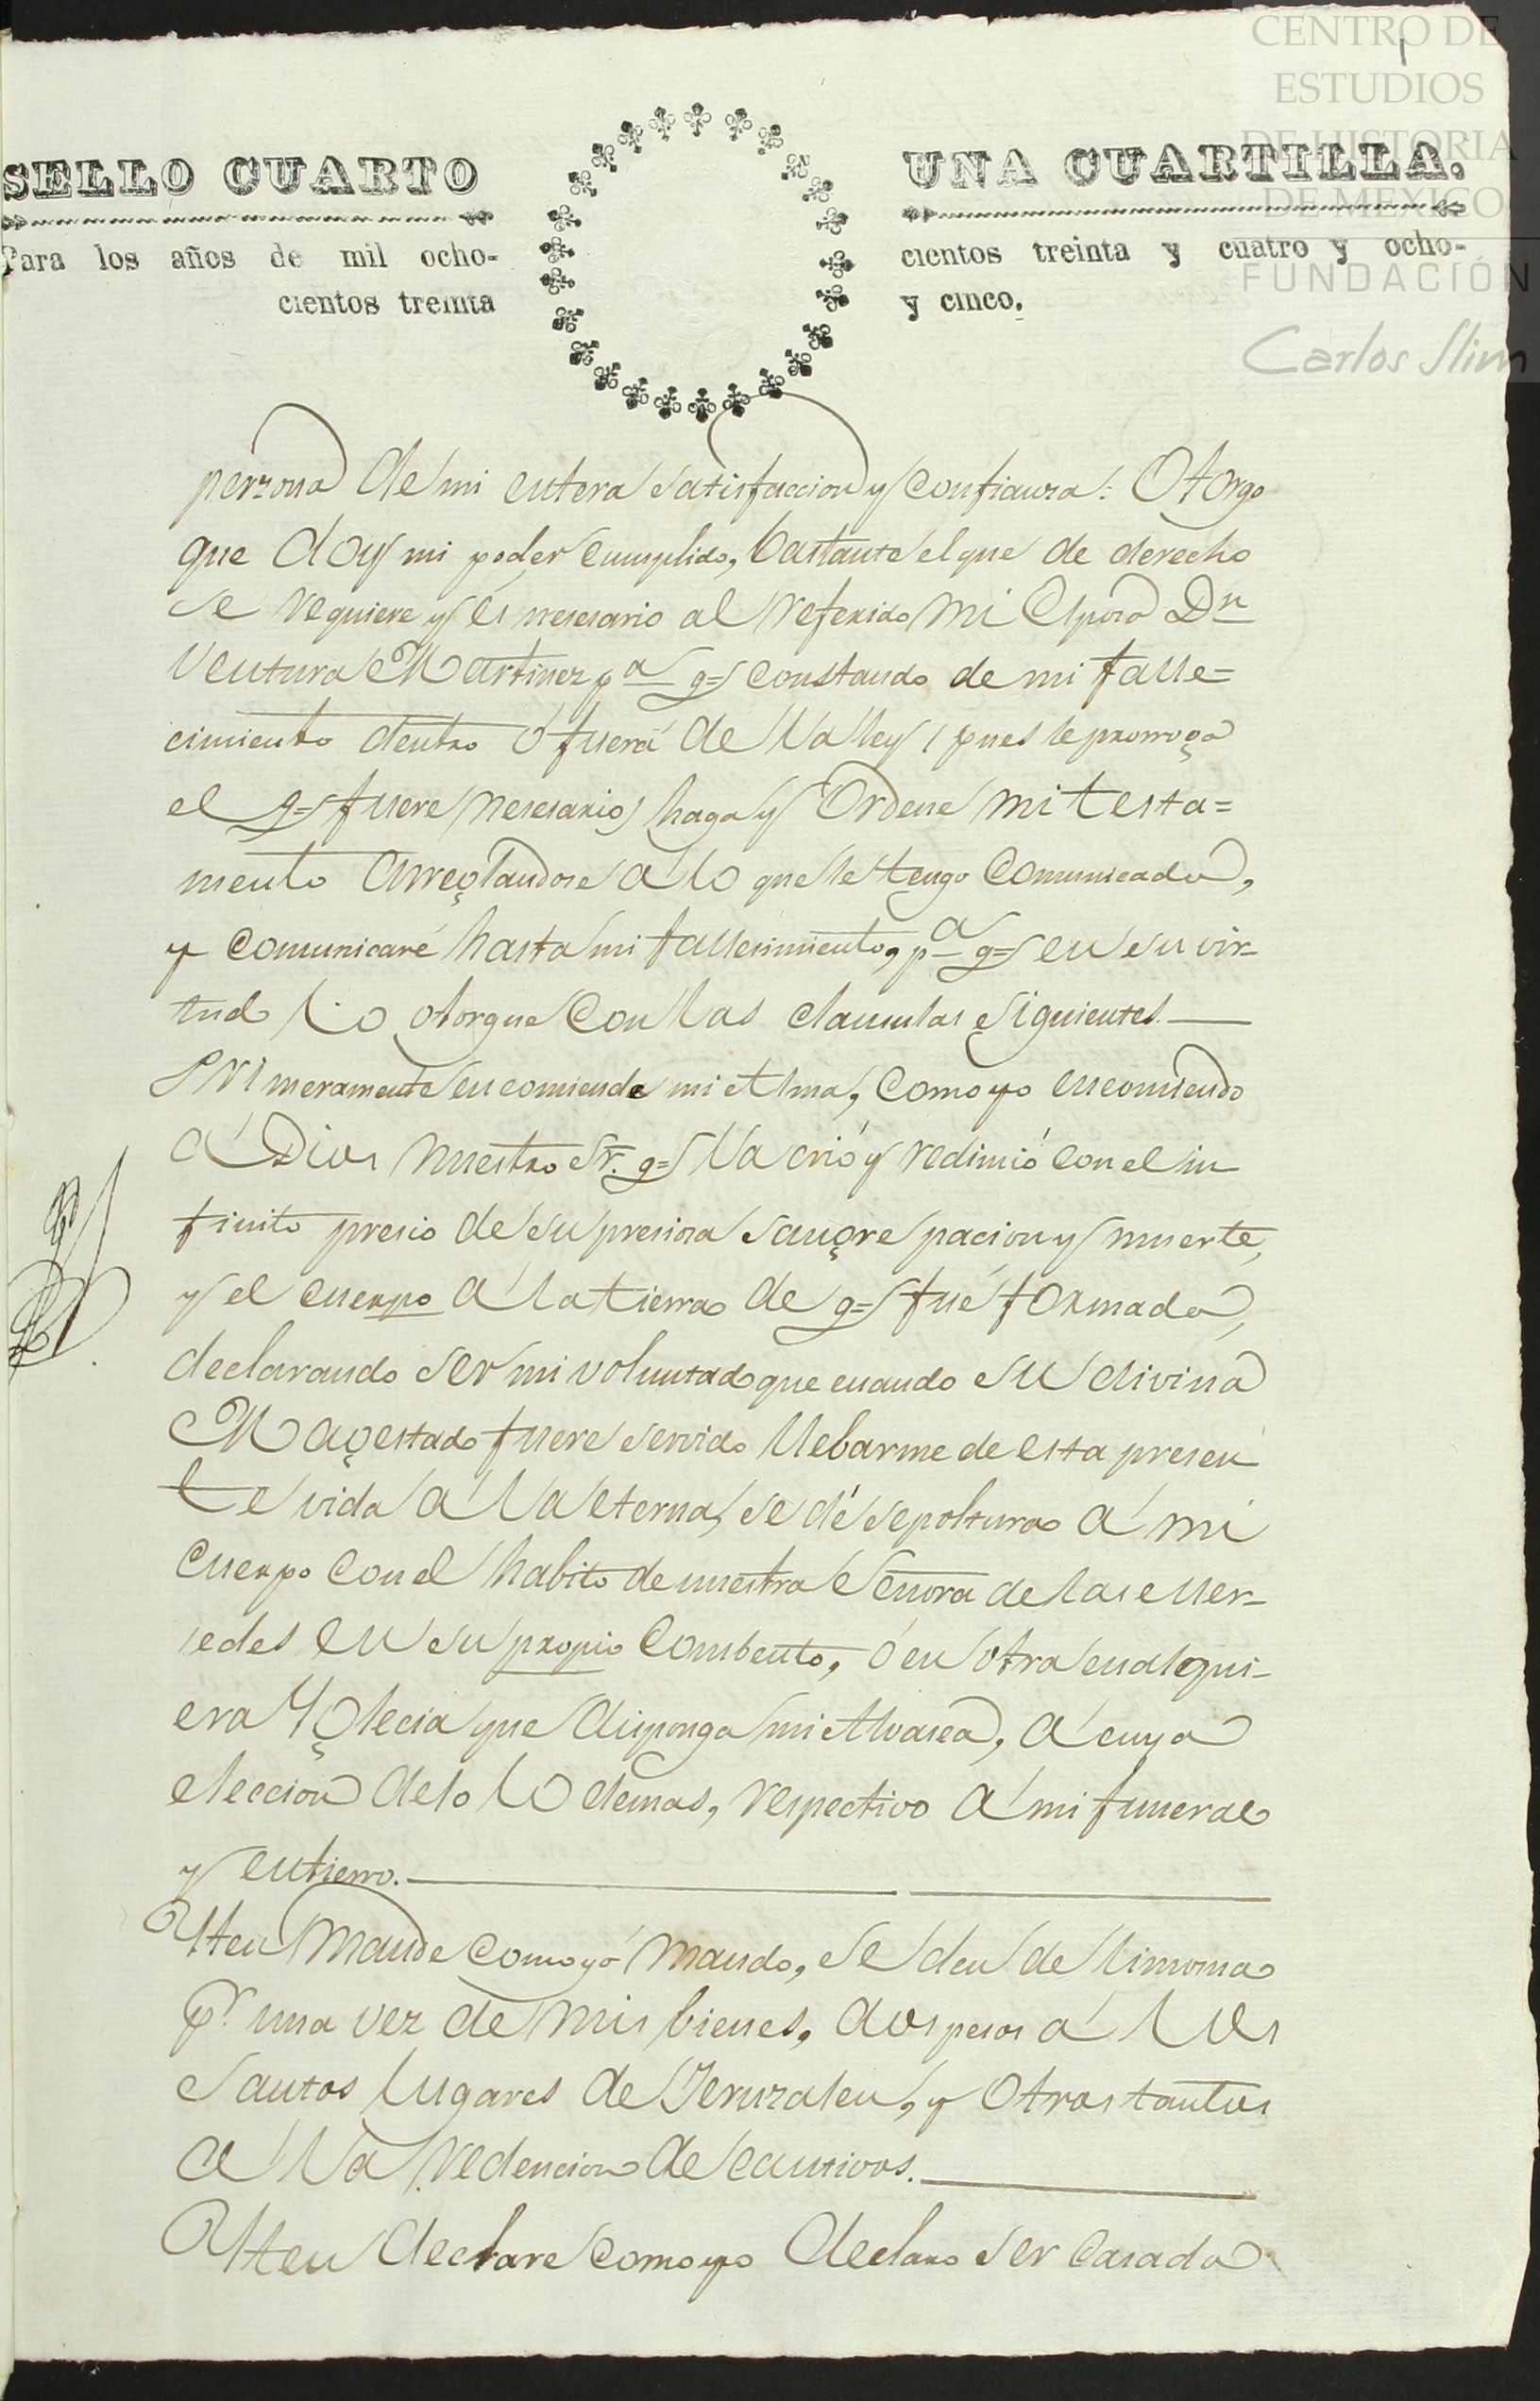 CENTRO DE
ESTUDIOS
DE HISTORIA
DE MEXICO
FUNDACIÓN
Carlos Slim
SELLO CUARTO UNA CUARTILLA.
Para los años de mil ocho- cientos treinta y cuatro y ocho-
cientos treinta y cinco.
perzona de mi entera satisfaccion y confianza: Otorgo
que doy mi poder cumplido, bastante el que de derecho
se requiere y és nesesario al referido mi Esposo Dn
Ventura Martinez pa q= constando de mi falle=
cimiento dentro ó fuera de la ley (pues le prorroga
el q= fuere nesesario) haga y Ordene mi testa=
mento arreglandose á lo que le tengo comunicado,
y comunicaré hasta mi fallesimiento, pa q= en su vir-
tud lo otorgue con las clausulas siguientes.
Primeramente encomiende mi Alma, como yo encomiendo
á Dios nuestro Sr. q= la crió y redimió con el in
finito presio de su presiosa sangre pacion y muerte,
y el cuerpo á la tierra de q= fué formado,
declarando ser mi voluntad que cuando su divina
Magestad fuere servido llebarme de esta presen
te vida á la eterna, se dé sepoltura á mi
cuerpo con el habito de nuestra Señora de las Mer-
sedes en su propio Combento, ó en otra cualqui-
era Yglecia que disponga mi Alvasea, á cuya
eleccion dejo lo demas, respectivo á mi funeral
y entierro.
Yten Mande como yó mando, se den de limosna
pr. una vez de mis bienes, dos pesos á los
Santos lugares de Jeruzalen, y otros tantos
á la redencion de cautivos.
Yten declare como yo declaro ser casada